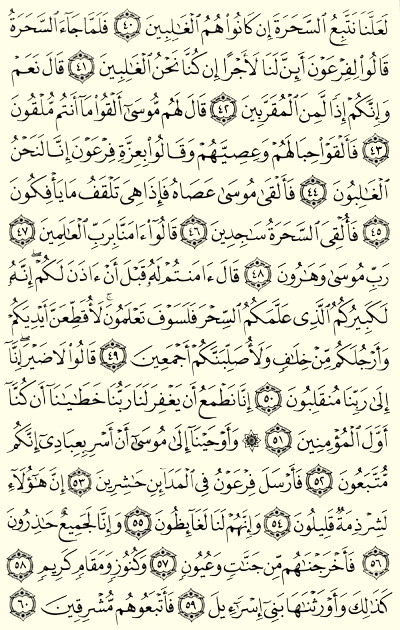 لَعَلَّنَا نَتَّبِعُ السَّحَرَةَ إِن كَانُوا۟ هُمُ الْغَـٰلِبِينَ ﴿٤٠﴾ فَلَمَّا جَآءَ السَّحَرَةُ
قَالُوا۟ لِفِرْعَوْنَ أَئِنَّ لَنَا لَأَجْرًا إِن كُنَّا نَحْنُ الْغَـٰلِبِينَ ﴿٤١﴾ قَالَ نَعَمْ
وَإِنَّكُمْ إِذًا لَّمِنَ الْمُقَرَّبِينَ ﴿٤٢﴾ قَالَ لَهُم مُّوسَىٰٓ أَلْقُوا۟ مَآ أَنتُم مُّلْقُونَ
﴿٤٣﴾ فَأَلْقَوْا۟ حِبَالَهُمْ وَعِصِيَّهُمْ وَقَالُوا۟ بِعِزَّةِ فِرْعَوْنَ إِنَّا لَنَحْنُ
الْغَـٰلِبُونَ ﴿٤٤﴾ فَأَلْقَىٰ مُوسَىٰ عَصَاهُ فَإِذَا هِىَ تَلْقَفُ مَا يَأْفِكُونَ
﴿٤٥﴾ فَأُلْقِىَ السَّحَرَةُ سَـٰجِدِينَ ﴿٤٦﴾ قَالُوٓا۟ ءَامَنَّا بِرَبِّ الْعَـٰلَمِينَ ﴿٤٧﴾
رَبِّ مُوسَىٰ وَهَـٰرُونَ ﴿٤٨﴾ قَالَ ءَامَنتُمْ لَهُۥ قَبْلَ أَنْ ءَاذَنَ لَكُمْ ۖ إِنَّهُۥ
لَكَبِيرُكُمُ الَّذِى عَلَّمَكُمُ السِّحْرَ فَلَسَوْفَ تَعْلَمُونَ ۚ لَأُقَطِّعَنَّ أَيْدِيَكُمْ
وَأَرْجُلَكُم مِّنْ خِلَـٰفٍ وَلَأُصَلِّبَنَّكُمْ أَجْمَعِينَ ﴿٤٩﴾ قَالُوا۟ لَا ضَيْرَ ۖ إِنَّآ
إِلَىٰ رَبِّنَا مُنقَلِبُونَ ﴿٥٠﴾ إِنَّا نَطْمَعُ أَن يَغْفِرَ لَنَا رَبُّنَا خَطَـٰيَـٰنَآ أَن كُنَّآ
أَوَّلَ الْمُؤْمِنِينَ ﴿٥١﴾ ۞ وَأَوْحَيْنَآ إِلَىٰ مُوسَىٰٓ أَنْ أَسْرِ بِعِبَادِىٓ إِنَّكُم
مُّتَّبَعُونَ ﴿٥٢﴾ فَأَرْسَلَ فِرْعَوْنُ فِى الْمَدَآئِنِ حَـٰشِرِينَ ﴿٥٣﴾ إِنَّ هَـٰٓؤُلَآءِ
لَشِرْذِمَةٌ قَلِيلُونَ ﴿٥٤﴾ وَإِنَّهُمْ لَنَا لَغَآئِظُونَ ﴿٥٥﴾ وَإِنَّا لَجَمِيعٌ حَـٰذِرُونَ
﴿٥٦﴾ فَأَخْرَجْنَـٰهُم مِّن جَنَّـٰتٍ وَعُيُونٍ ﴿٥٧﴾ وَكُنُوزٍ وَمَقَامٍ كَرِيمٍ ﴿٥٨﴾
كَذَٰلِكَ وَأَوْرَثْنَـٰهَا بَنِىٓ إِسْرَٰٓءِيلَ ﴿٥٩﴾ فَأَتْبَعُوهُم مُّشْرِقِينَ ﴿٦٠﴾